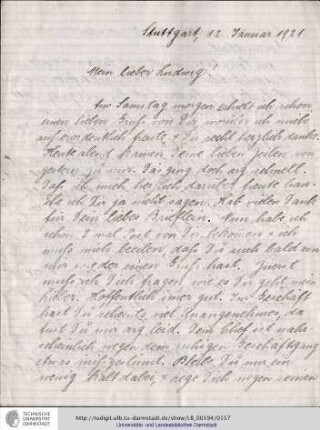 Stuttgart, 12. Januar 1921.
Mein lieber Ludwig!
Am Samstag morgen erhielt ich schon
einen lieben Gruß von Dir worüber ich mich
außerordentlich freute, & Dir recht herzlich danke.
Heute abend kamen Deine lieben Zeilen von
gestern zu mir. Das ging doch arg schnell.
Daß ich mich herzlich darüber freute brau-
che ich Dir ja nicht sagen. Hab vielen Dank
für Dein liebes Brieflein. Nun habe ich
schon 2 mal Post von Dir bekommen & ich
muß mich beeilen, daß Du auch bald von
mir wieder einen Gruß hast. Zuerst
muß ich Dich fragen wie es Dir geht mein
lieber. Hoffentlich immer gut. Im Geschäft
hast Du scheints viel Unangenehmes, da
tust Du mir arg leid. Dein Chef ist wahr-
scheinlich wegen dem ruhigen Geschäftsgang
etwas mißgestimmt. Bleibe Du nur ein
wenig kalt dabei, & rege Dich wegen seinen
TECHNISCHE
UNIVERSITÄT
DARMSTADT
http://tudigit.ulb.tu-darmstadt.de/show/LB_00194/0157
Universitäts- und Landesbibliothek Darmstadt